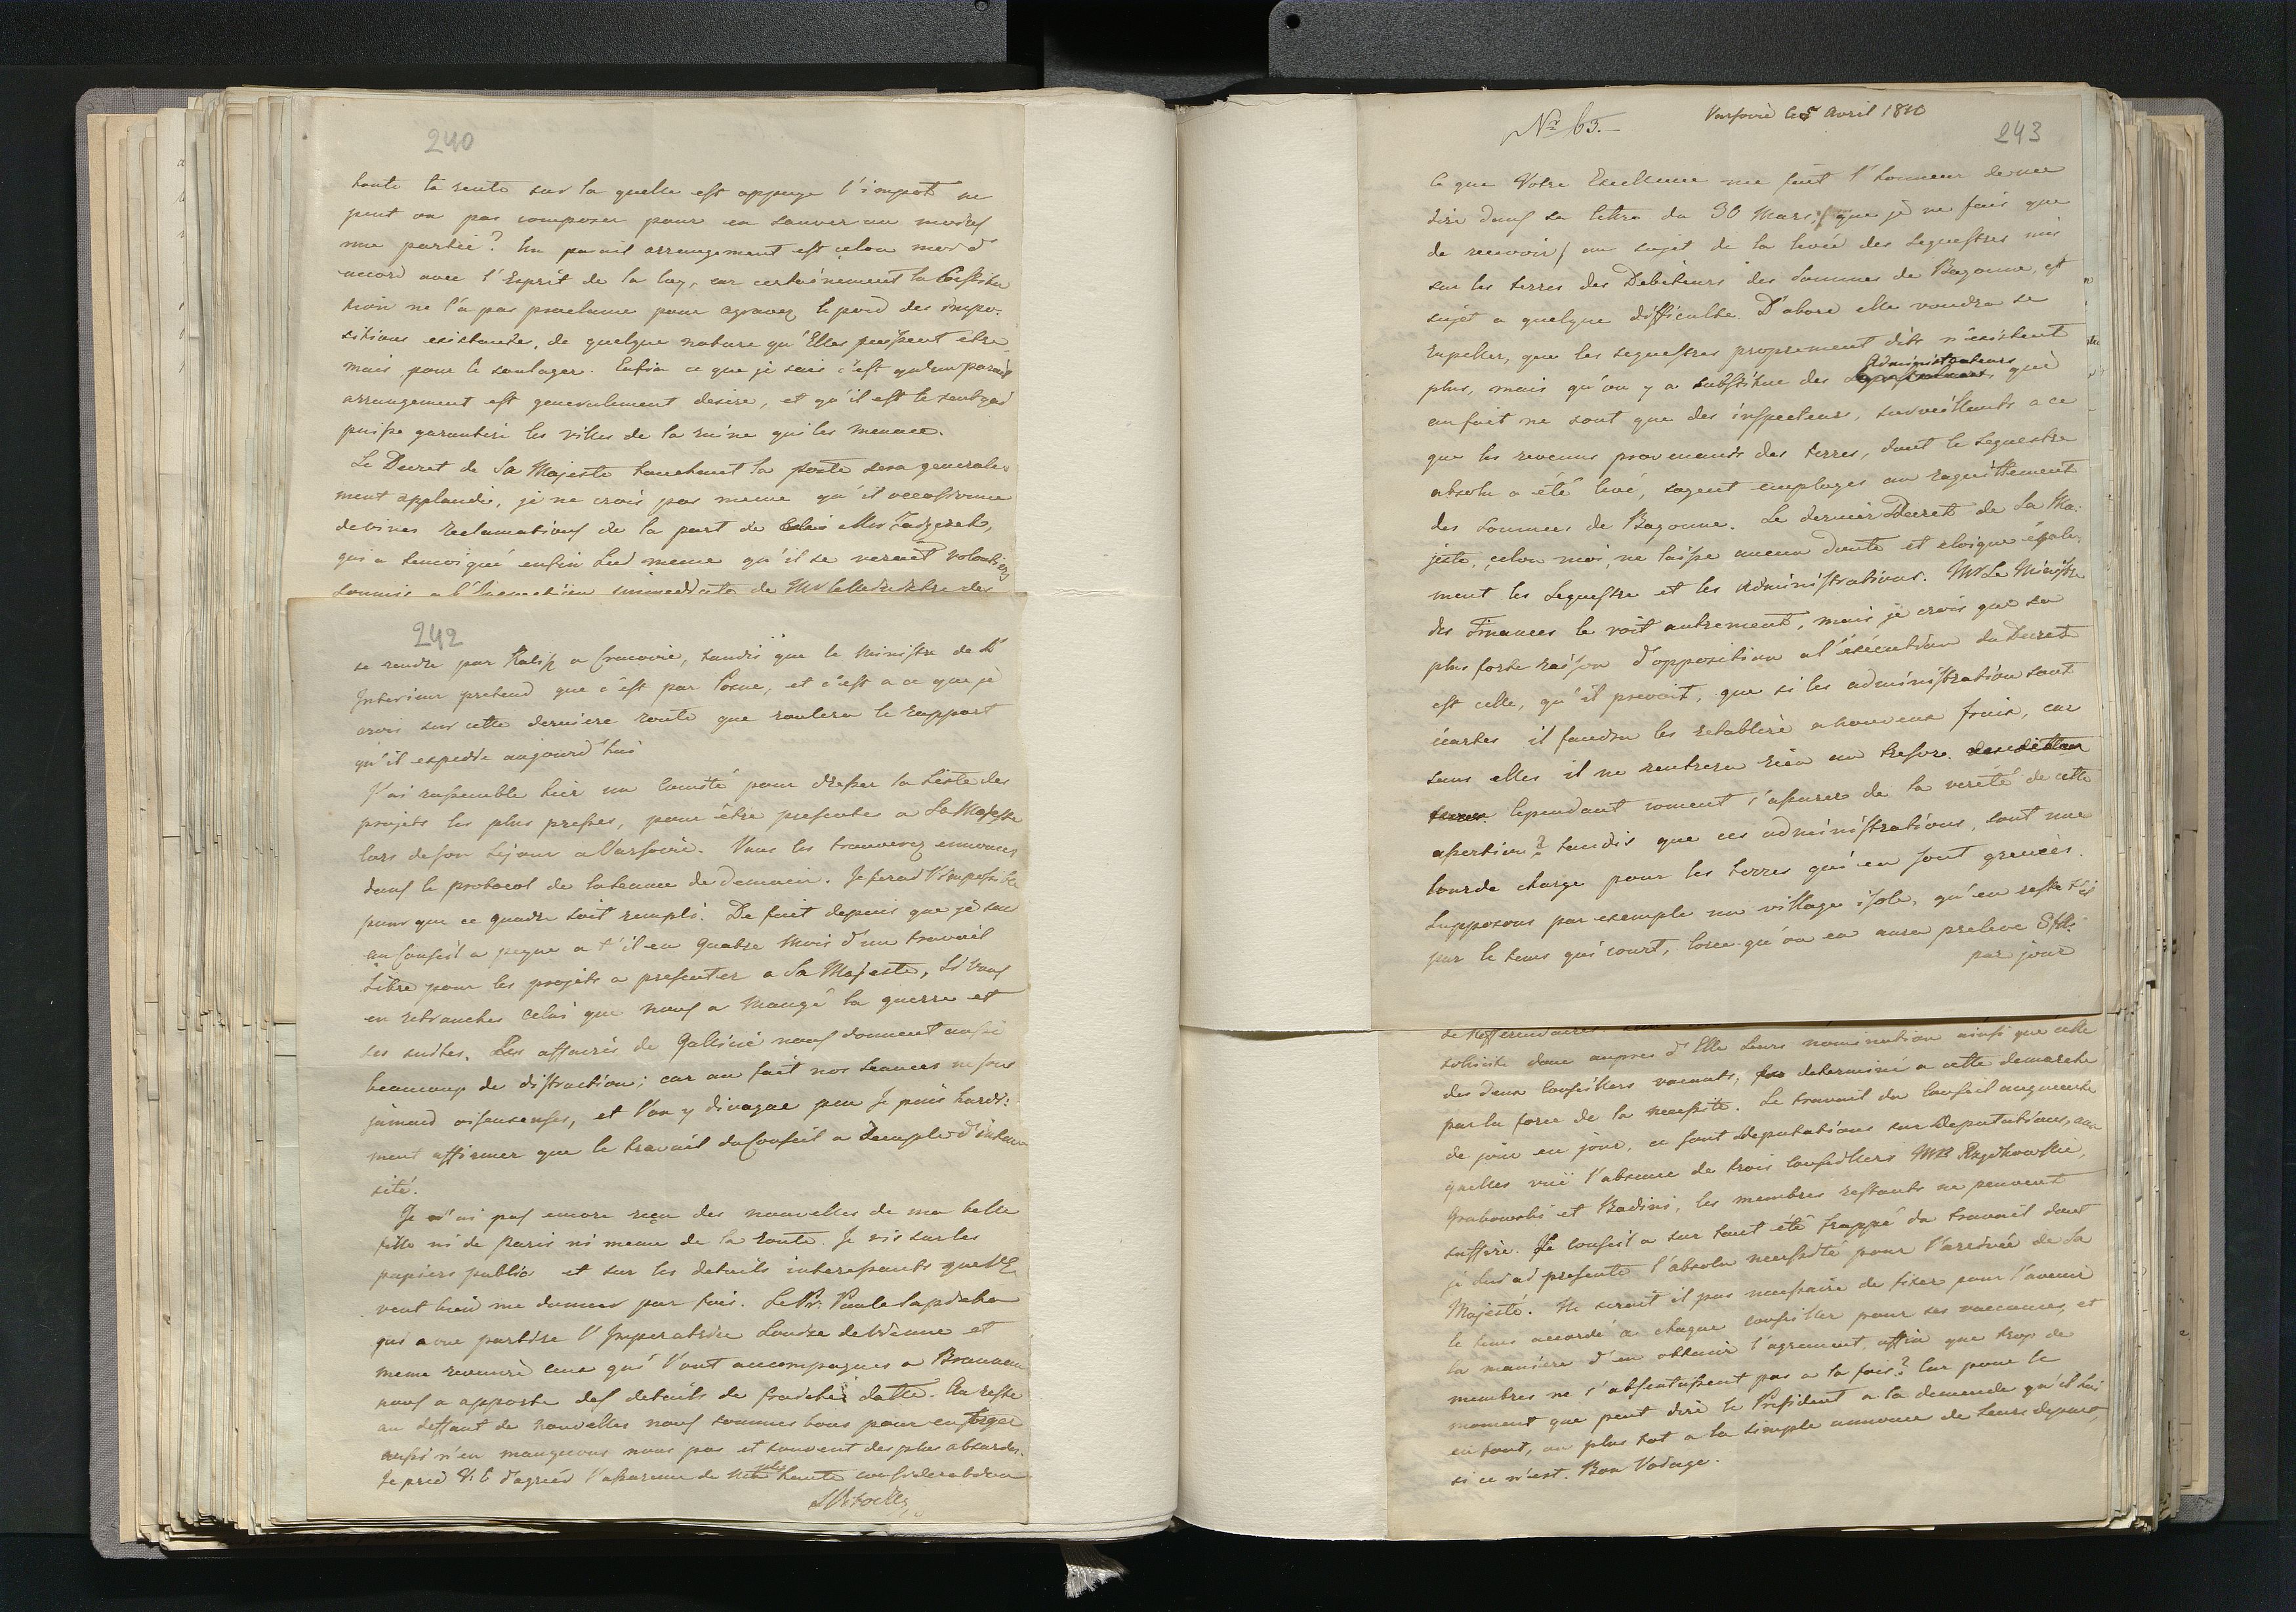 240
toute la rente sur la quelle est appuye l'impot ne
peut on pas composer pour en sauver au moins
une partie? Un pareil arrangement est celon moi d
accord avec l'Esprit de la loy, car certainement la Constitu
tion ne l'a pas proclamé pour agraver le poid des impo-
sitions existantes, de quelque nature qu'Elles puissent etre
mais pour le soulager. Enfin ce que je sais c'est qu'un pareil
arrangement est generalement desiré, et qu'il est le seul qui
puisse garantire les villes de la ruine qui les menace.
Le Decret de Sa Majesté touchant la poste sera generale-
ment applaudi, je ne crois pas meme qu'il occasionne
de vives reclamations de la part de Mr Zaÿzerek,
qui a temoigné enfin lui meme qu'il se verrait volontiers
soumis a l' immediate de Mr le Ministre des
242
se rendre par Kalisz a Cracovie, tandis que le Ministre de l'
Interieur pretend que c'est par Posne, et c'est a ce que je
crois sur cette derniere route que roulera le rapport
qu'il expedie aujourd'hui
J'ai rassemblé hier un Comité pour dresser la Liste des
projets les plus pressés, pour être presentés a Sa Majesté
lors de son Sejour a Varsovie. Vous les trouverez ennoncés
dans le protocol de la seance de demain. Je ferai l'impossible
pour que ce quadre soit rempli. De fait depuis que je suis
au Conseil a peyne a t'il eu quatre Mois d'un travail
libre pour les projets a presenter a Sa Majesté, si Vous
en retranchez celui que nous a mangé la guerre et
ses suites. Les affaires de Gallicie nous donnent aussi
beaucoup de distraction; car au fait nos seances ne sont
jamais oiseuses, et l'on y divague peu Je puis hardi-
ment affirmer que le travail du Conseil a d'inten
sité.
Je n'ai pas encore reçu des nouvelles de ma belle
fille ni de Paris ni meme de la route. Je vis sur les
papiers public et sur les details interessants que V:E:
veut bien me donner par fois. Le Pr: Paul Sapieha
qui a vue partire l'Imperatrice Louise de Vienne et
meme revenire ceux qui l'ont accompagnés a Braunau
nous a apporté des details de fraiche datte. Au reste
au deffaut de nouvelles nous sommes bons pour en forger
aussi n'en manquons nous pas et souvent des plus absurdes.
Je prie V: E d'agréer l'assurance de haute consideration
SPotocki
Nr 63.
Varsovie le 5 Avril 1810
243
Ce que Votre Excellence me fait l'honneur de me
dire dans sa lettre du 30 Mars, que je ne fais que
de recevoir / au sujet de la levée des Sequestres mis
sur les terres des Debiteurs des Sommes de Bayonne, est
sujet a quelque difficulté. D'abord elle voudra se
rapeller, que les sequestres proprement dits n'existent
plus, mais qu'on y a substitué des Administrateurs qui
au fait ne sont que des inspecteurs, surveillants a ce
que les revenus provenants des terres, dont le sequestre
absolu a été levé, soyent employés au raquittement
des Sommes de Bayonne. Le dernier Decret de Sa Ma-
jesté, celon moi, ne laisse aucun doute et eloigne égale-
ment les Sequestre et les Administrations. Mr Le Ministre
des Finances le voit autrement, mais je crois que sa
plus forte raison d'opposition a l'exécution du Decret
est celle, qu'il prevoit, que si les administration sont
écartées il faudra les retablire a nouveaux frais, car
sans elles il ne rentrera rien au tresore.
Cependant coment s'assurer de la verité de cette
assertion? tandis que ces administrations, sont une
lourde charge pour les terres qui en sont grevées.
Supposons par exemple un village isolé, qu'en reste t'il
par le tems qui court, lorsqu'on en aura prelevé
par jour
de Refferendaires
solicite donc aupres d'Elle leurs nomination ainsi que celle
des deux Conseillers vacants, determiné a cette demarche
par la force de la necessité. Le travail du Conseil augmente
de jour en jour, ce sont Deputations sur Deputations, aux
quelles vuë l'absence de trois Conseillers MM
Grabowski et Badini, les membres restants ne peuvent
suffire. Le Conseil a sur tout été frappé du travail dont
je lui ai presenté l'absolu necessité pour l'arrivée de Sa
Majesté. Ne serait il pas necessaire de fixer pour l'avenir
le tems accordé a chaque conseiller pour ses vaccances, et
la maniere d'en obtenir l'agrement, affin que trop de
membres ne s'absentassent pas a la fois? Car pour le
moment que peut dire le President a la demande qu'il lui
en font, ou plus tot a la simple annonce de leurs depart,
si ce n'est. Bon Voÿage.